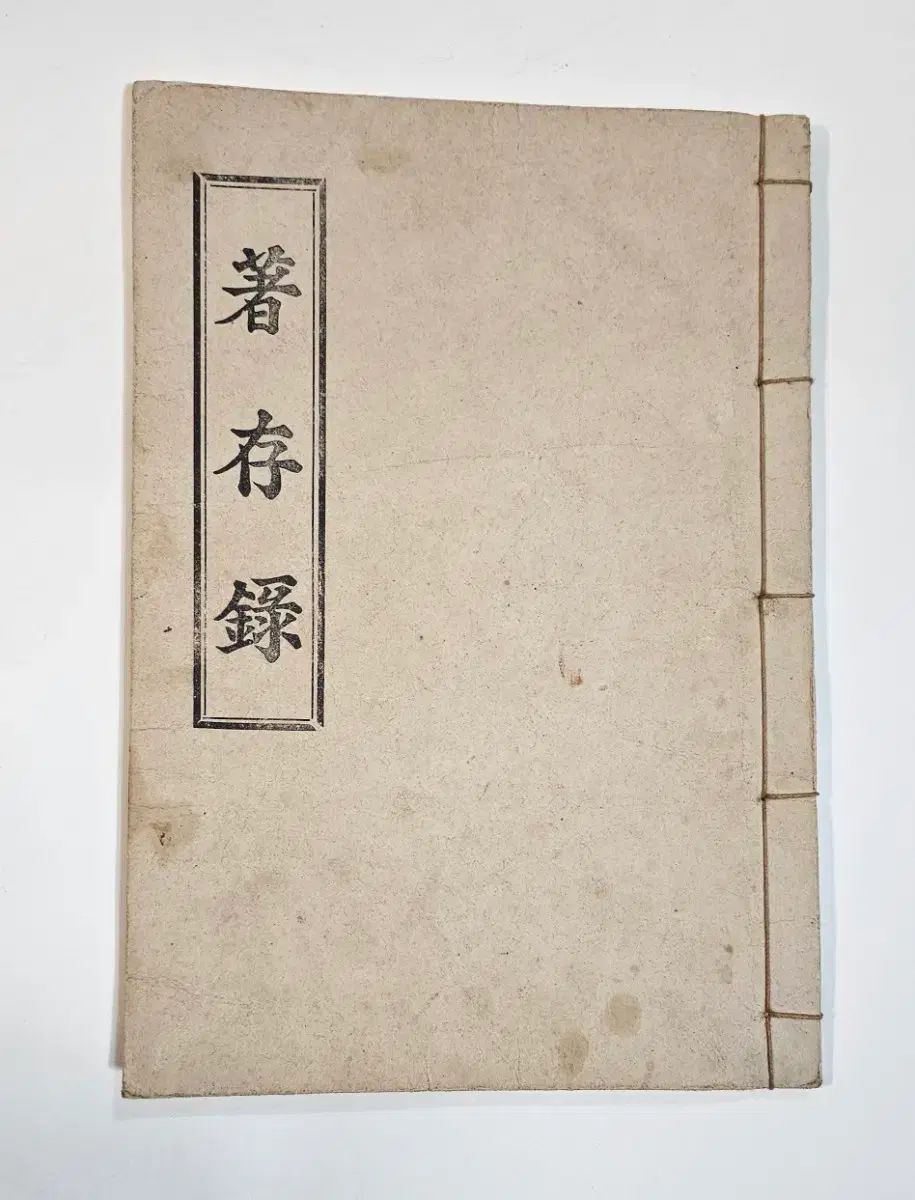 著存錄